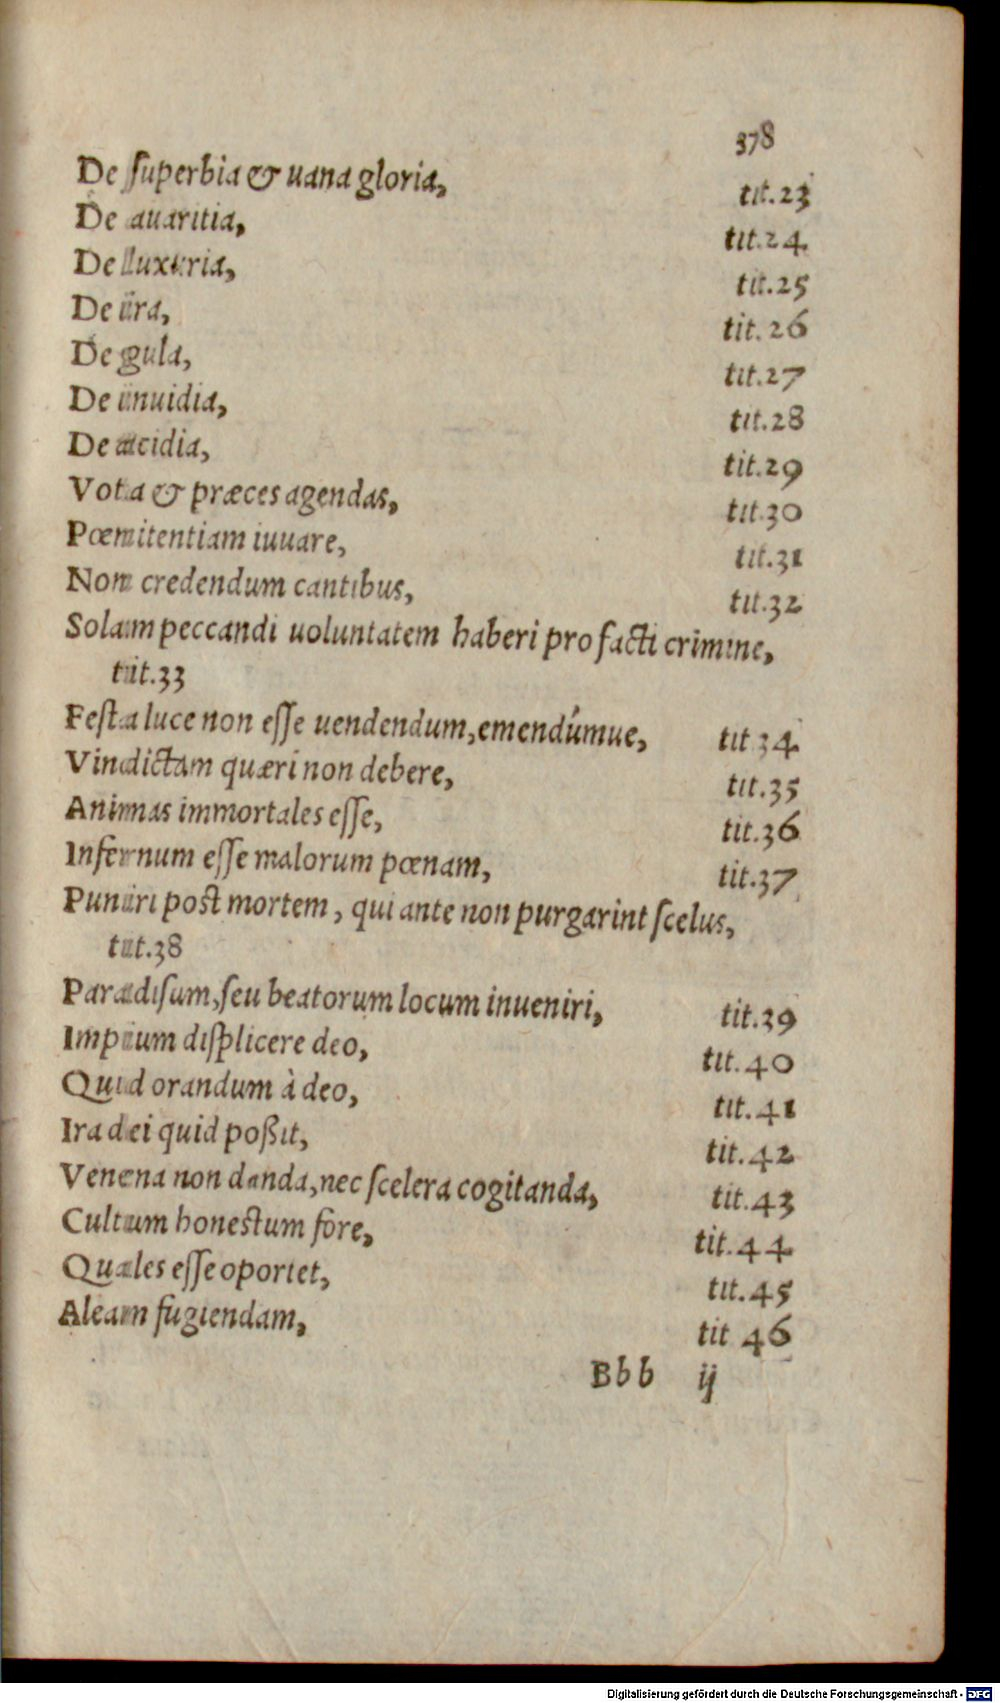 378
De superbia & uana gloria, tit.23
De auaritia, tit.24
De luxuria, tit.25
De ira, tit.26
De gula, tit.27
De inuidia, tit.28
De acidia, tit.29
Vota & præces agendas, tit.30
Pœnitentiam iuuare, tit.31
Non credendum cantibus, tit.32
Solam peccandi uoluntatem haberi pro facti crimine,
tit.33
Festa luce non esse uendendum, emendúmue, tit 34
Vindictam quæri non debere, tit.35
Animas immortales esse, tit.36
Infernum esse malorum pœnam, tit.37
Puniri post mortem, qui ante non purgarint scelus,
tit.38
Paradisum, seu beatorum locum inueniri, tit.39
Impium displicere deo, tit.40
Quid orandum à deo, tit.41
Ira dei quid poßit, tit.42
Venena non danda, nec scelera cogitanda, tit.43
Cultum honestum fore, tit.44
Quales esse oportet, tit.45
Aleam fugiendam, tit 46
Bbb ij
Digitalisierung gefördert durch die Deutsche Forschungsgemeinschaft - DFG